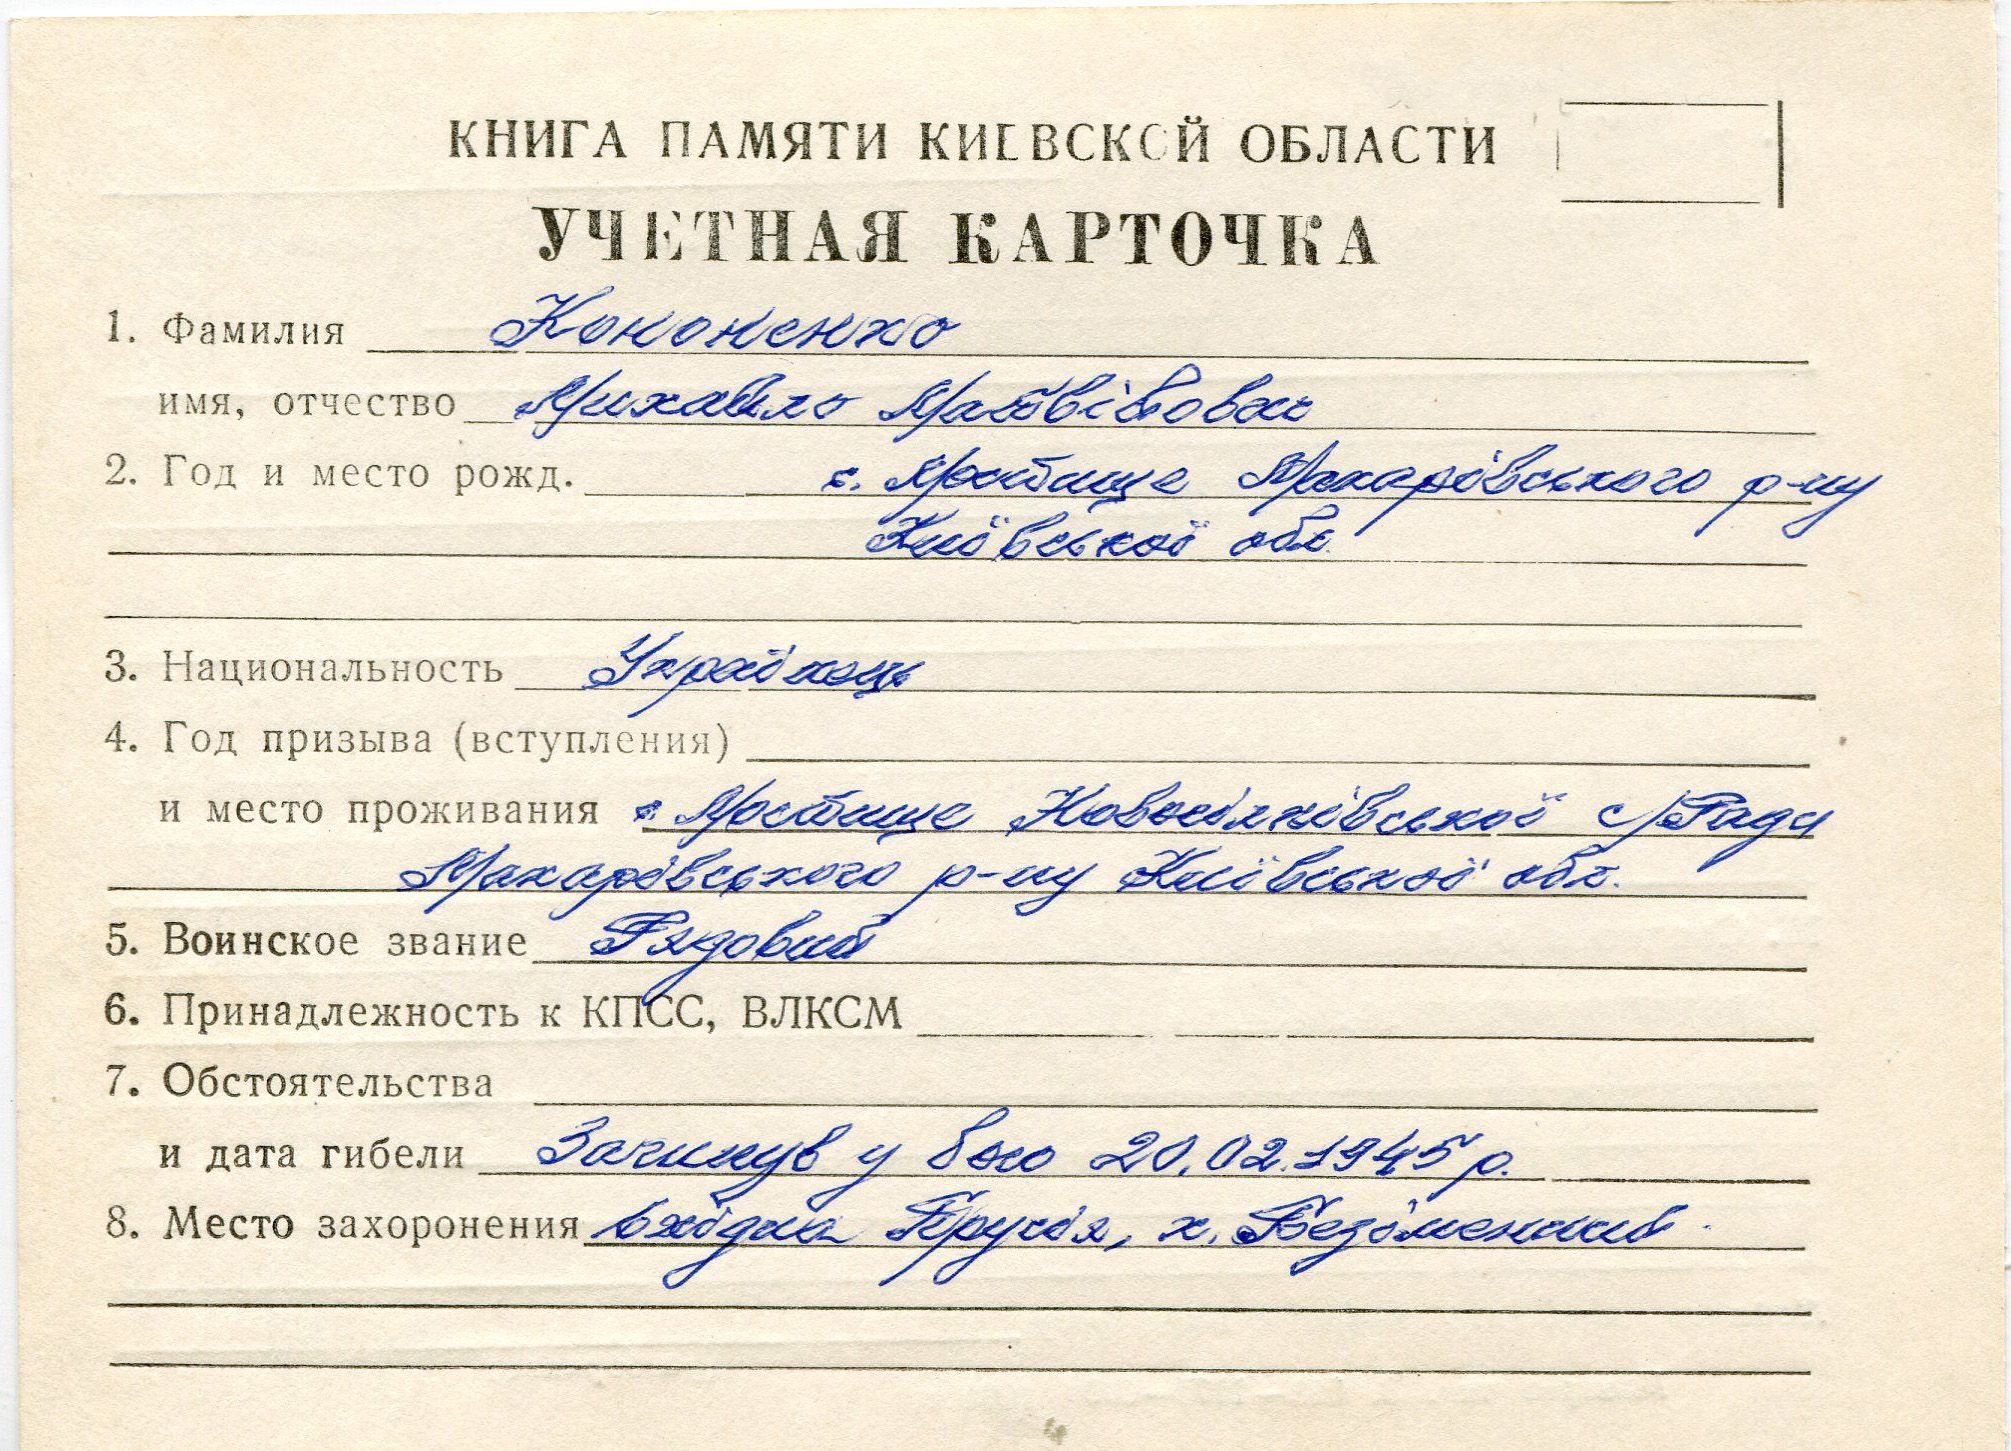 КНИГА ПАМЯТИ КИЕВСКОЙ ОБЛАСТИ
УЧЕТНАЯ КАРТОЧКА
1. Фамилия Кононенко
имя, отчество Михайло Матвійович
2. Год и место рожд. с. Мостище Макарівського р-ну
Київської обл.
3. Национальность Українець
4. Год призыва (вступления)
и место проживания с. Мостище Новосілківської с/Ради
Макарівського р-ну Київської обл.
5. Воинское звание Рядовий
6. Принадлежность к КПСС, ВЛКСМ
7. Обстоятельства
и дата гибели Загинув у бою 20.02.1945 р.
8. Место захоронения Східна Прусія, х. Безіменний.